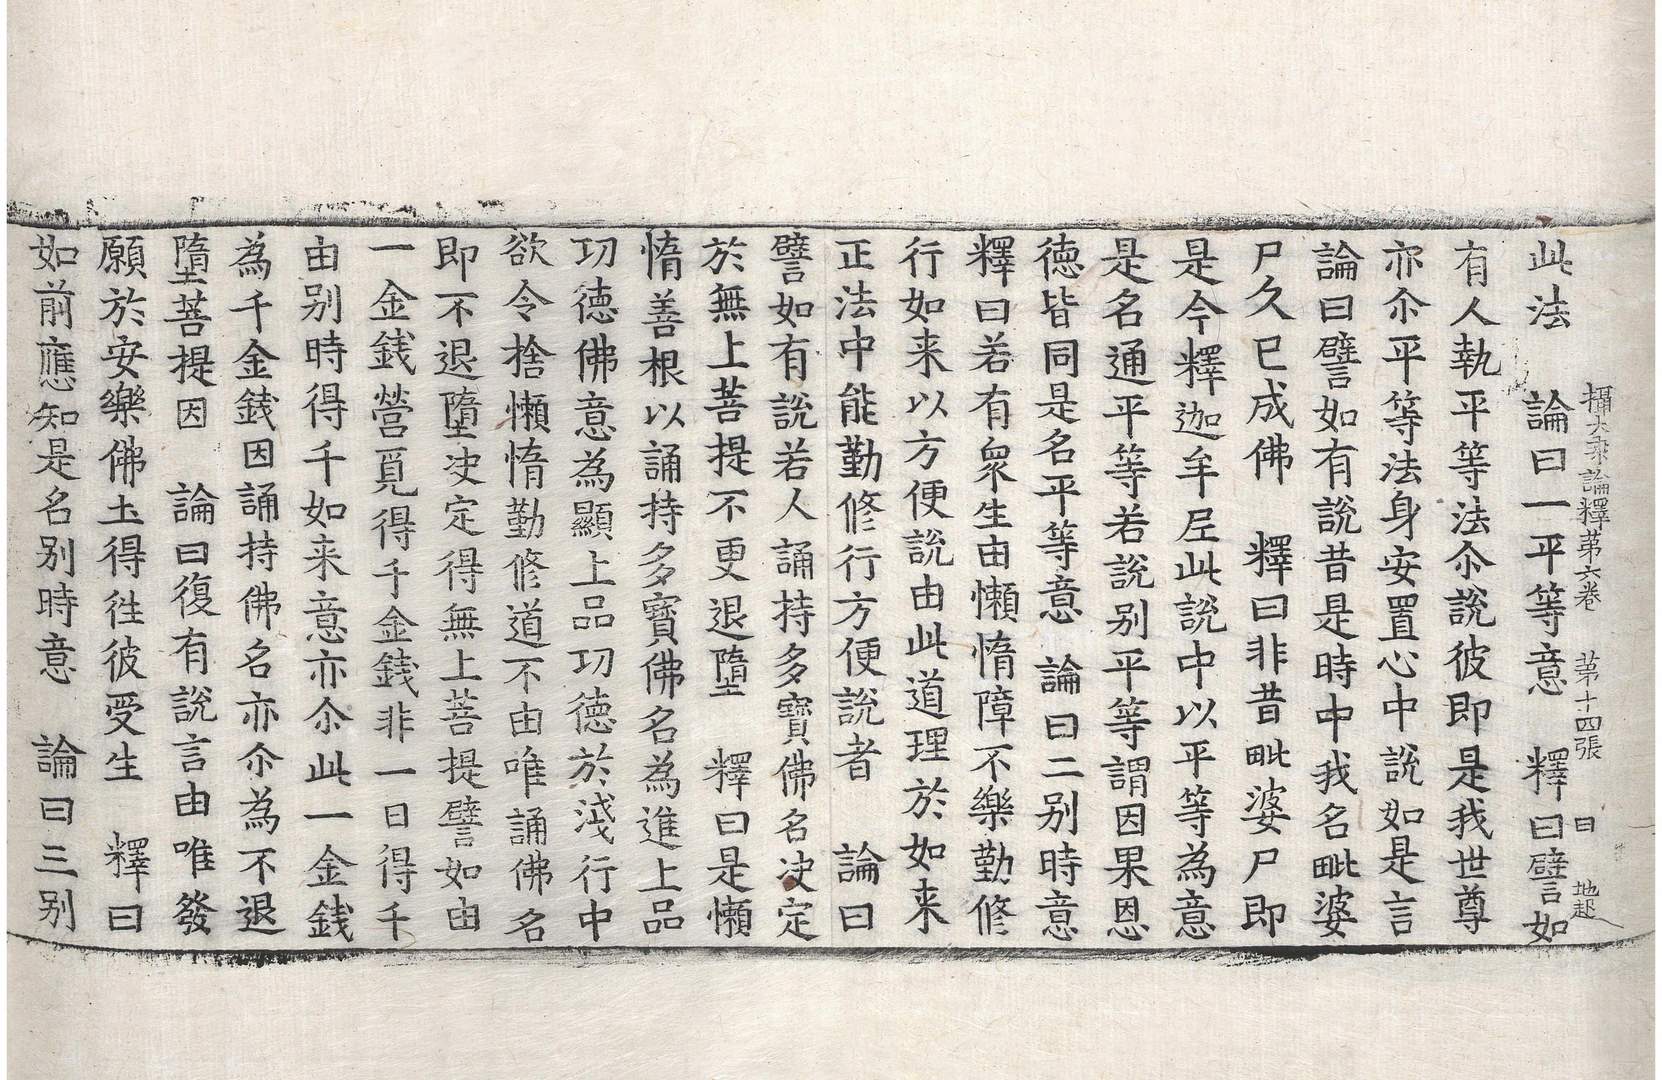 攝大乗論釋第六卷 第十四張 曰 地起
此法 論曰一平等意 釋曰譬如
有人執平等法尒說彼即是我世尊
亦尒平等法身安置心中說如是言
論曰譬如有說昔是時中我名毗婆
尸久已成佛 釋曰非昔毗婆尸即
是今釋迦牟尼此說中以平等為意
是名通平等若說別平等謂因果恩
德皆同是名平等意 論曰二別時意
釋曰若有衆生由懶惰障不樂勤修
行如来以方便說由此道理於如来
正法中能勤修行方便說者 論曰
譬如有說若人誦持多寶佛名決定
於無上菩提不更退墮 釋曰是懶
惰善根以誦持多寶佛名為進上品
功德佛意為顯上品功德於淺行中
欲令捨懶惰勤修道不由唯誦佛名
即不退墮決定得無上菩提譬如由
一金錢營覓得千金錢非一日得千
由別時得千如来意亦尒此一金錢
為千金錢因誦持佛名亦尒為不退
墮菩提因 論曰復有說言由唯發
願於安樂佛土得徃彼受生 釋曰
如前應知是名別時意 論曰三別